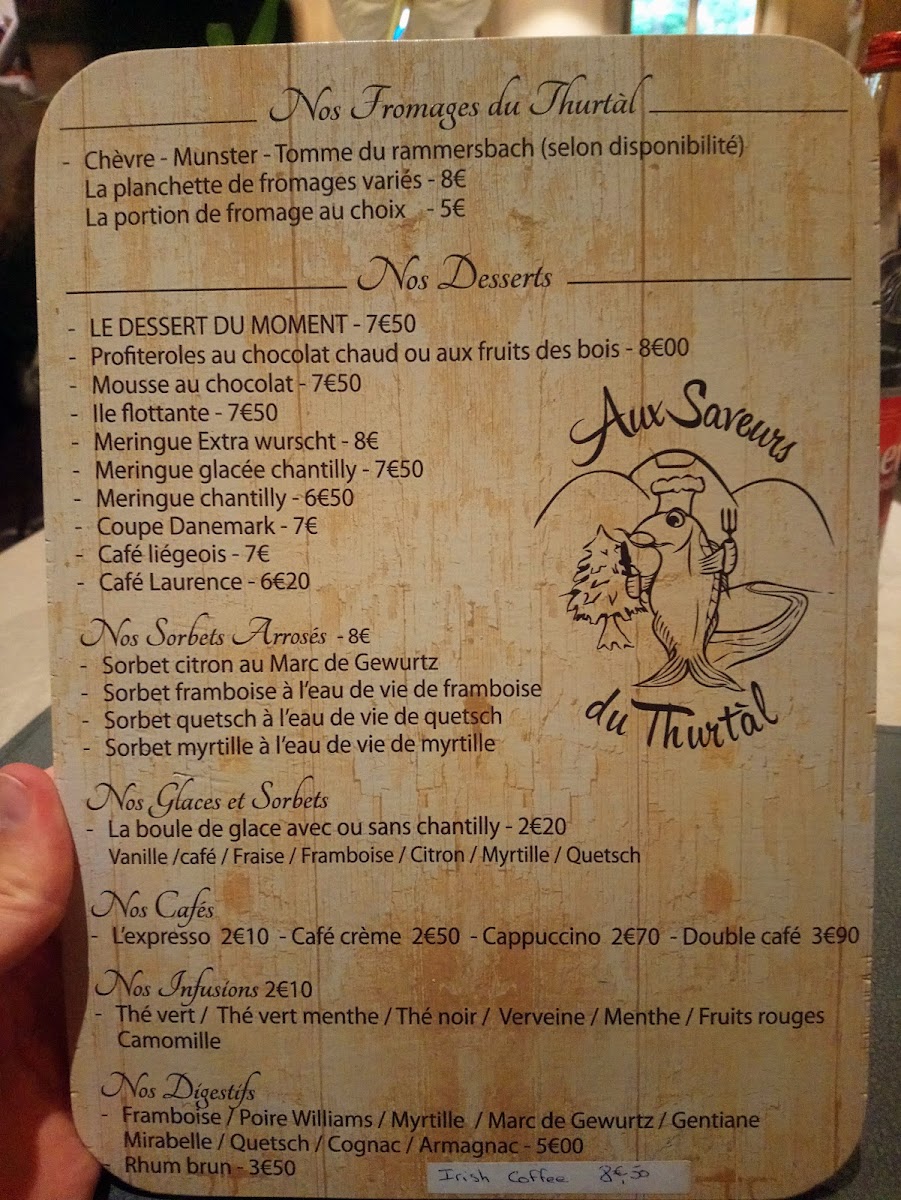 Nos Fromages du Thurtàl
- Chèvre - Munster - Tomme du rammersbach (selon disponibilité)
La planchette de fromages variés - 8€
La portion de fromage au choix - 5€
Nos Desserts
- LE DESSERT DU MOMENT - 7€50
- Profiteroles au chocolat chaud ou aux fruits des bois - 8€00
- Mousse au chocolat - 7€50
- Ile flottante - 7€50
- Meringue Extra wurscht - 8€
- Meringue glacée chantilly - 7€50
- Meringue chantilly - 6€50
- Coupe Danemark - 7€
- Café liégeois - 7€
- Café Laurence - 6€20
Aux Saveurs
du Thurtàl
Nos Sorbets Arrosés - 8€
- Sorbet citron au Marc de Gewurtz
- Sorbet framboise à l'eau de vie de framboise
- Sorbet quetsch à l'eau de vie de quetsch
- Sorbet myrtille à l'eau de vie de myrtille
Nos Glaces et Sorbets
- La boule de glace avec ou sans chantilly - 2€20
Vanille /café / Fraise / Framboise / Citron / Myrtille / Quetsch
Nos Cafés
- L'expresso 2€10 - Café crème 2€50 - Cappuccino 2€70 - Double café 3€90
Nos Infusions 2€10
- Thé vert / Thé vert menthe / Thé noir / Verveine / Menthe / Fruits rouges
Camomille
Nos Digestifs
- Framboise / Poire Williams / Myrtille / Marc de Gewurtz / Gentiane
Mirabelle / Quetsch / Cognac / Armagnac - 5€00
Rhum brun - 3€50
Irish Coffee 8€,50